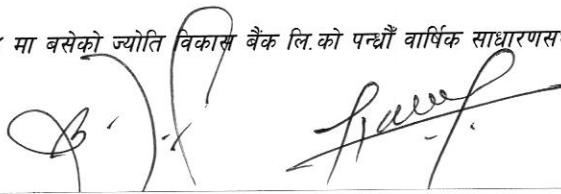 मा बसेको ज्योति विकास बैंक लि.को पन्ध्रौँ वार्षिक साधारणस